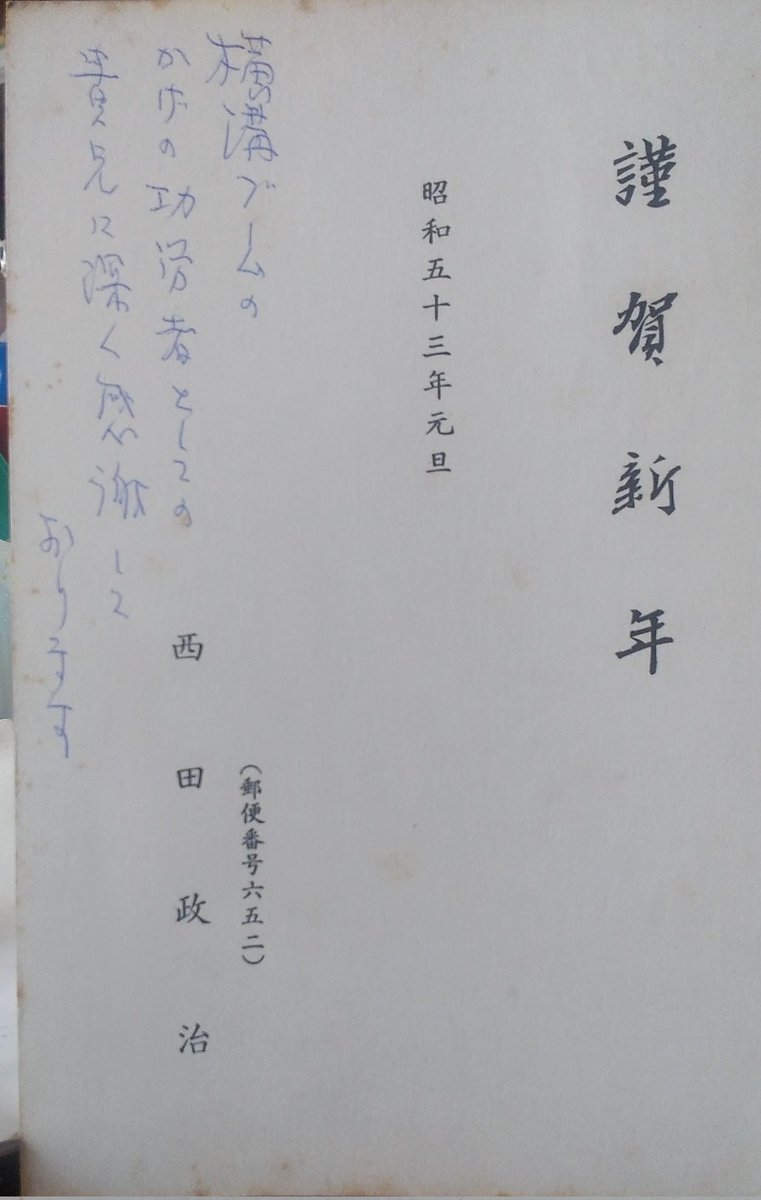 謹賀新年
昭和五十三年元旦
横溝ブームの
かげの功労者としての
貴兄に深く感謝して
おります
(郵便番号六五二)
西田政治